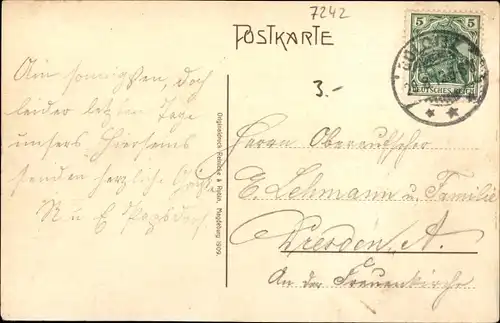 7242
POSTKARTE
3.-
5
DEUTSCHES REICH
Am sonnigsten, doch
leider letzten Tage
unsers Hierseins
senden herzliche Grüße
M u E
Originaldruck Reinicke & Rubin, Magdeburg 1909.
Herrn
E. Lehmann u. Familie
Dresden, A.
An der Frauenkirche